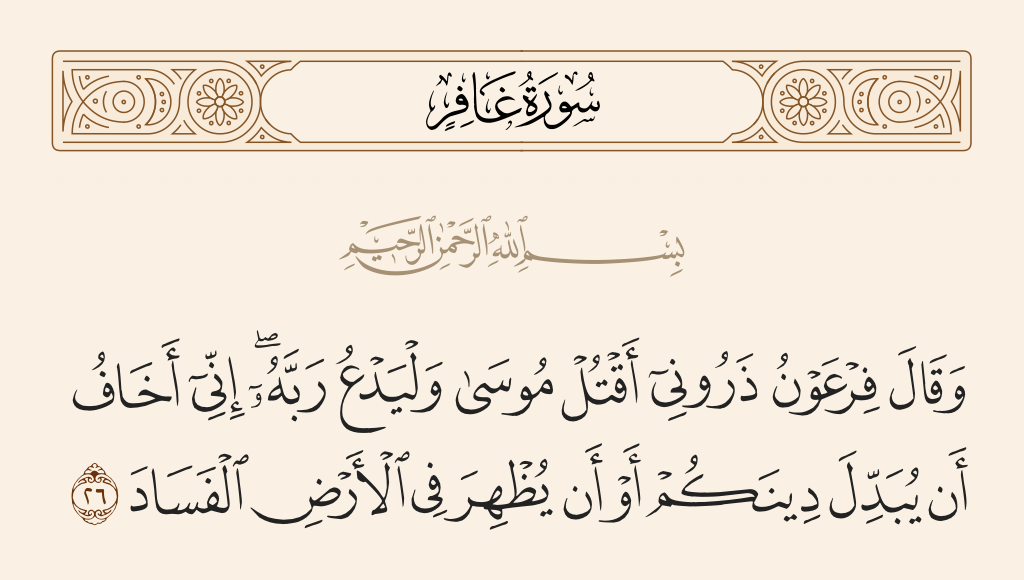 سُورَةُ غَافِرٍ
بِسْمِ ٱللَّهِ ٱلرَّحْمَٰنِ ٱلرَّحِيمِ
وَقَالَ فِرْعَوْنُ ذَرُونِىٓ أَقْتُلْ مُوسَىٰ وَلْيَدْعُ رَبَّهُۥٓ ۖ إِنِّىٓ أَخَافُ
أَن يُبَدِّلَ دِينَكُمْ أَوْ أَن يُظْهِرَ فِى ٱلْأَرْضِ ٱلْفَسَادَ ٢٦